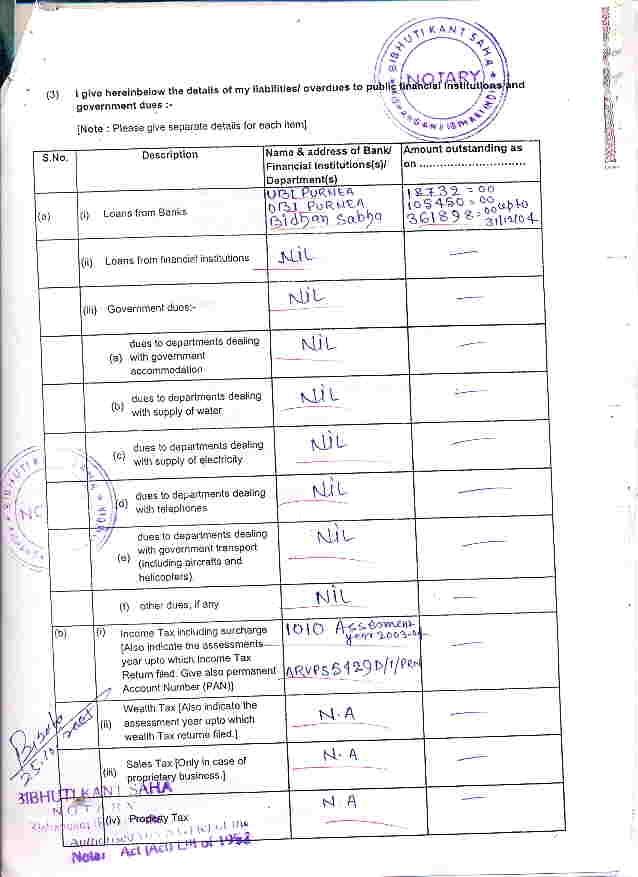 BIBHUTI KANT SAHA
NOTARY
(3) I give hereinbelow the details of my liabilities/ overdues to public financial institutions and
government dues :-
[Note : Please give separate details for each item]
S.No. Description Name & address of Bank/ Financial Institutions(s)/ Department(s) Amount outstanding as on ..............................
(a) (i) Loans from Banks
UBI PURNEA 18732=00
PURNEA 105450=00
Bidhan Sabha 361898=00 upto
31/12/04
(ii) Loans from financial institutions NiL —
(iii) Government dues:- NiL —
dues to departments dealing
(a) with government NiL —
accommodation
(b) dues to departments dealing NiL —
with supply of water
(c) dues to departments dealing NiL —
with supply of electricity
(d) dues to departments dealing NiL —
with telephones
dues to departments dealing
with government transport NiL —
(e) (including aircrafts and
helicopters)
(f) other dues, if any NiL —
(b) (i) Income Tax including surcharge 1010 Assesment
[Also indicate the assessments year 2003-04
year upto which Income Tax
Return filed. Give also permanent
Account Number (PAN)]
Wealth Tax [Also indicate the
(ii) assessment year upto which N.A —
wealth Tax returne filed.]
(iii) Sales Tax [Only in case of N.A —
proprietary business.]
(iv) Property Tax N.A —
25.10.2005
BIBHUTI KANT SAHA
NOTARY